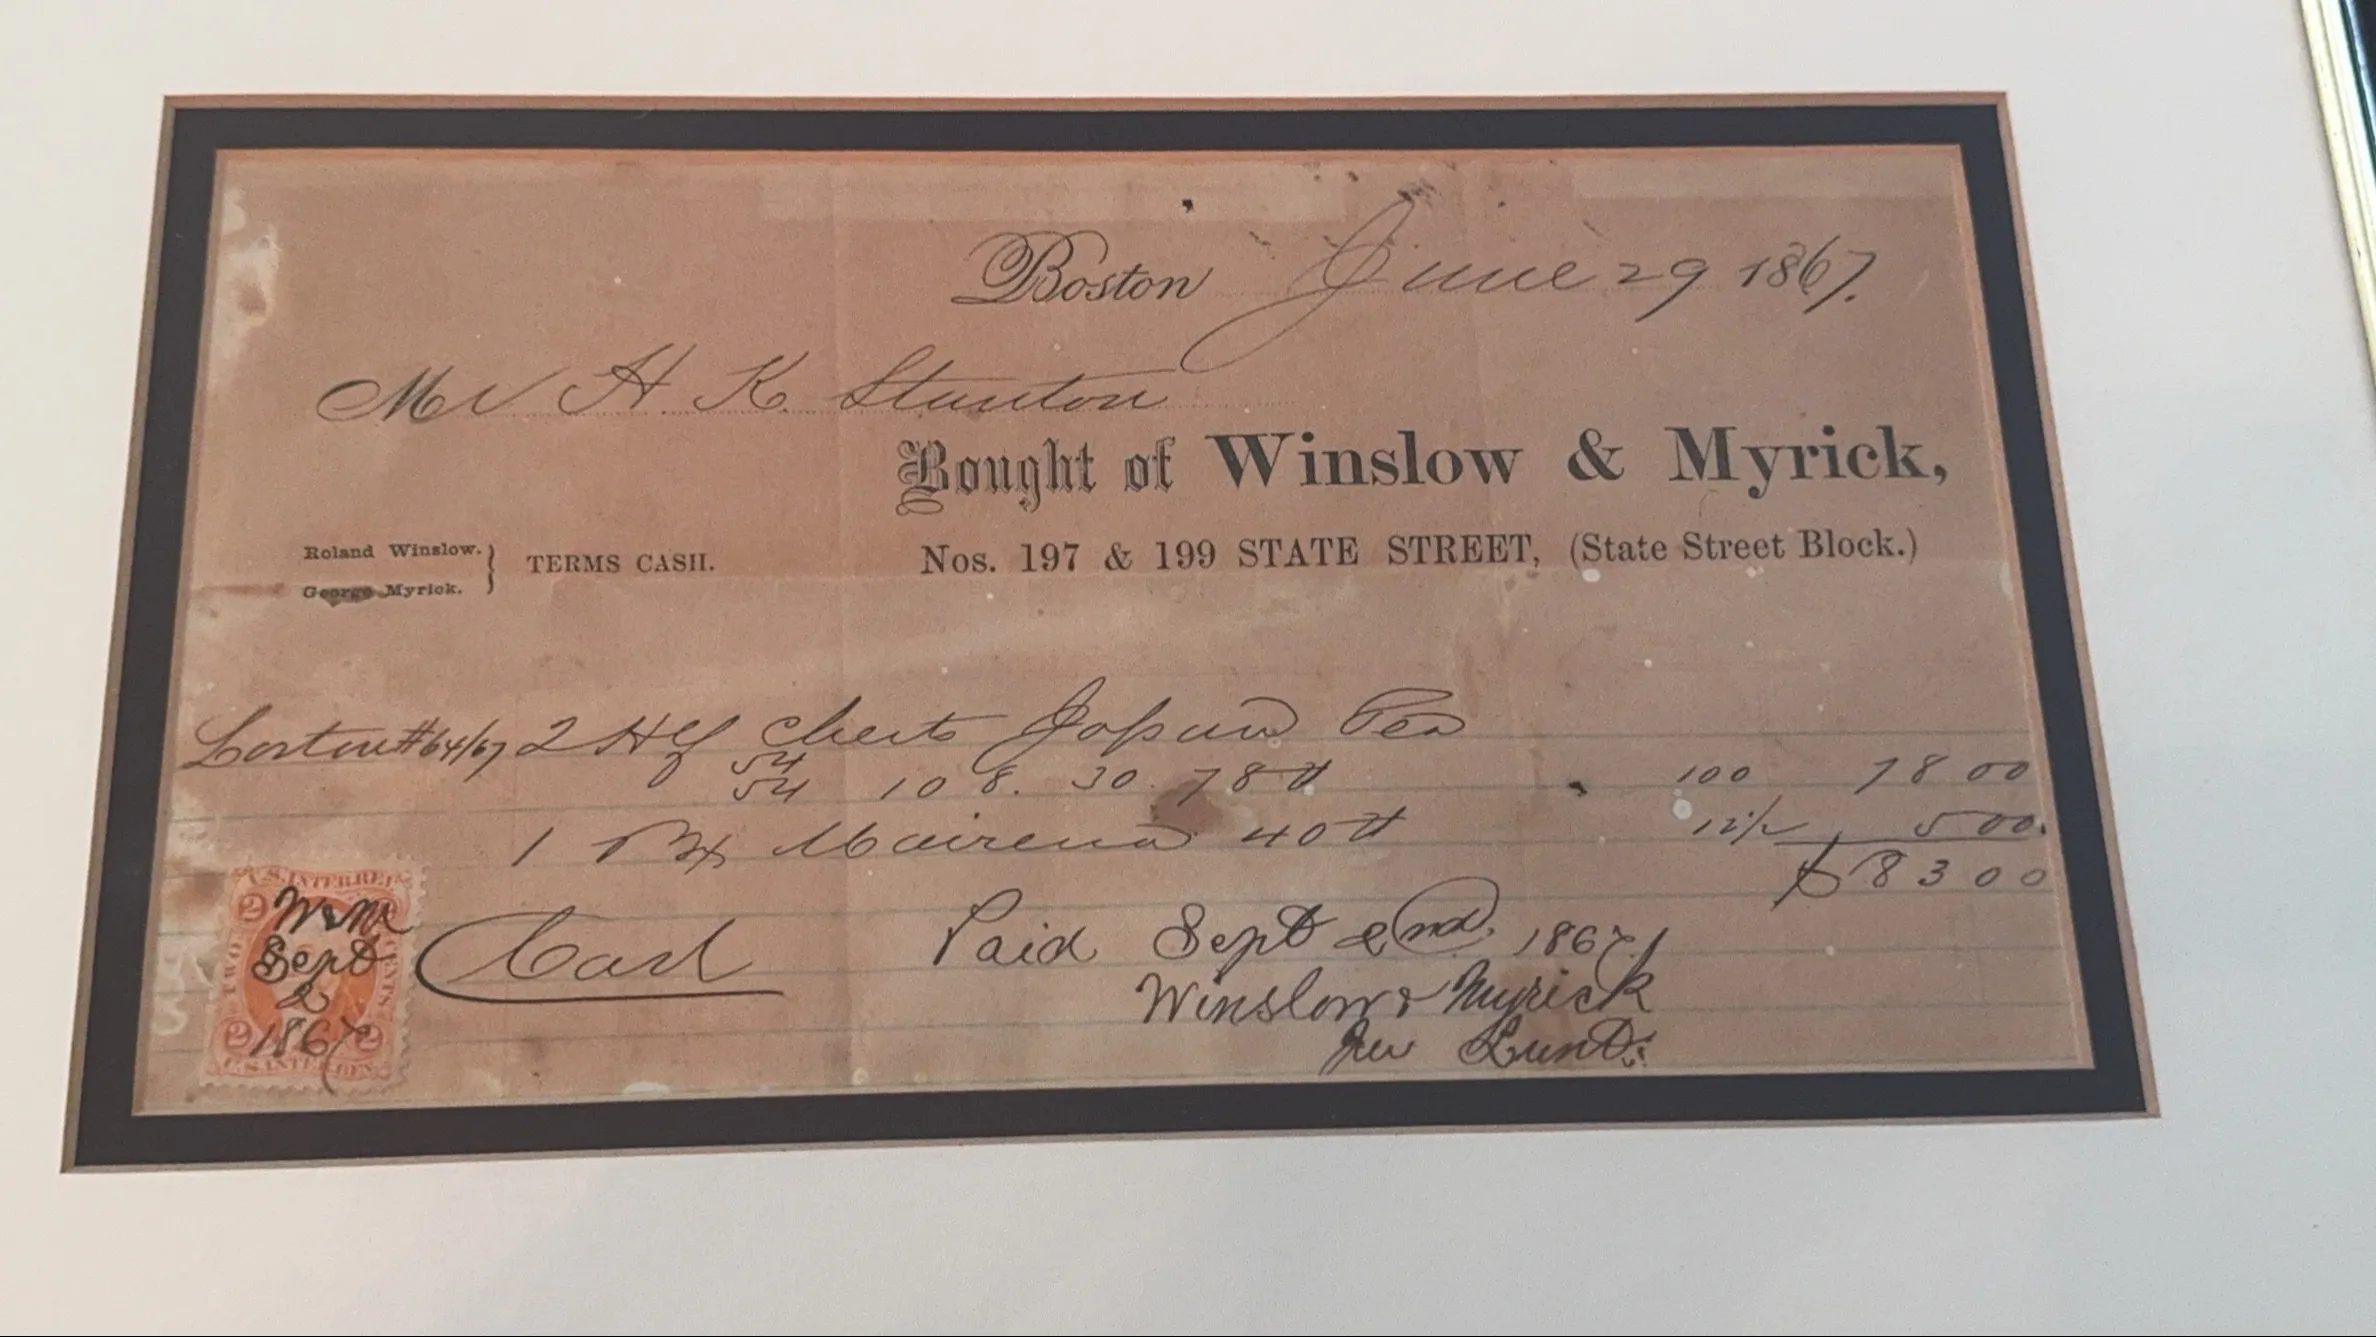 Boston June 29 1867.
Mr A K Stanton
Bought of Winslow & Myrick,
Roland Winslow.
George Myrick.
TERMS CASH.
Nos. 197 & 199 STATE STREET, (State Street Block.)
#64/67 2 Hf Chests Japan Tea
54
54 108. 30. 78 lb 100 78 00
1 Bx 40 lb 12 1/2 5 00.
$83 00
U.S. INTER. REV.
2 2
W & M
Sept
2
1867
TWO CENTS
2 2
U.S. INTER. REV.
Paid Sept 2nd. 1867
Winslow & Myrick
Lunt.